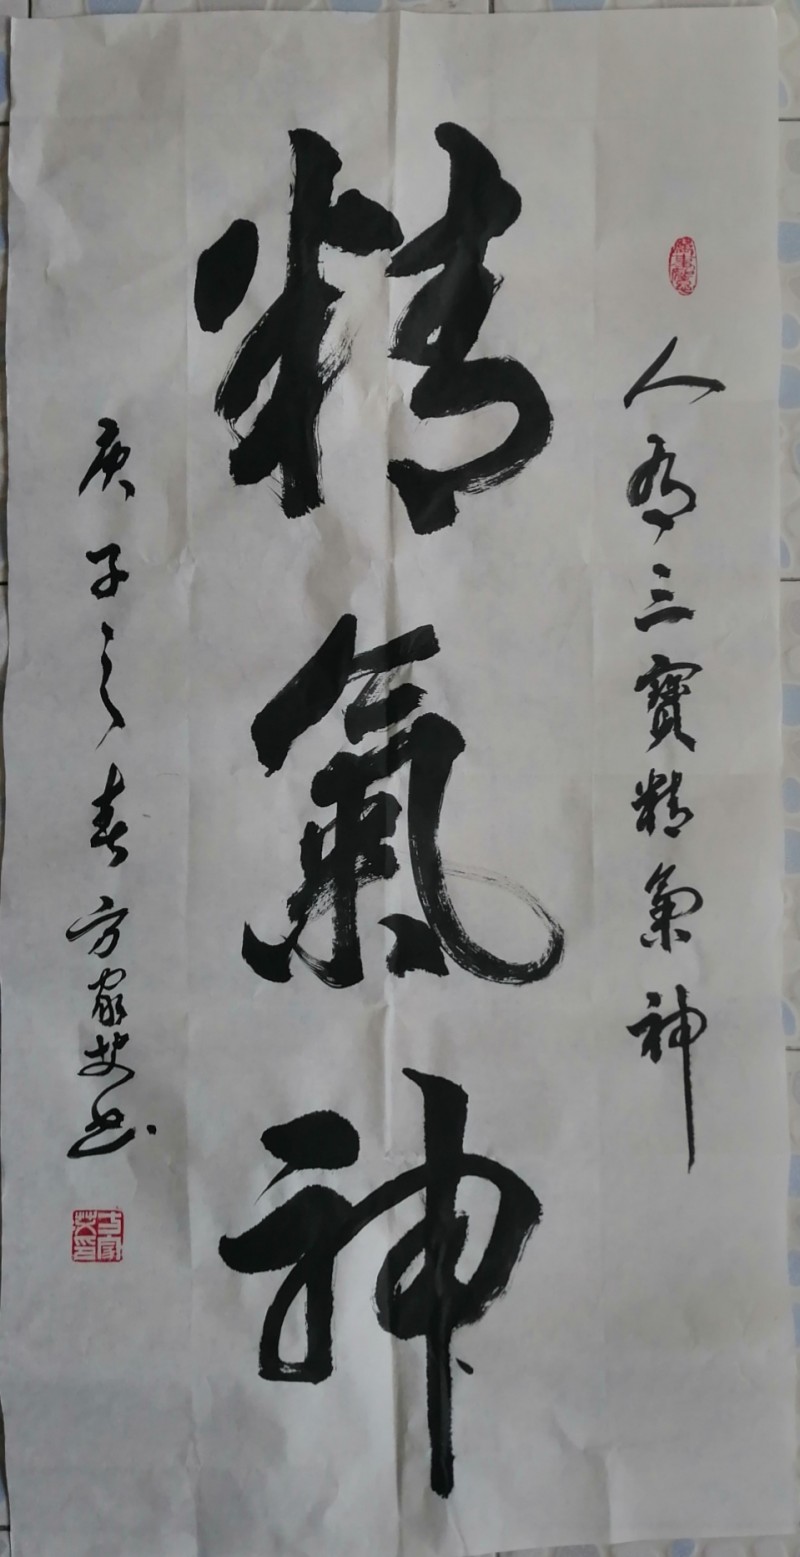 人有三寶精氣神
精氣神
庚子之春方家书